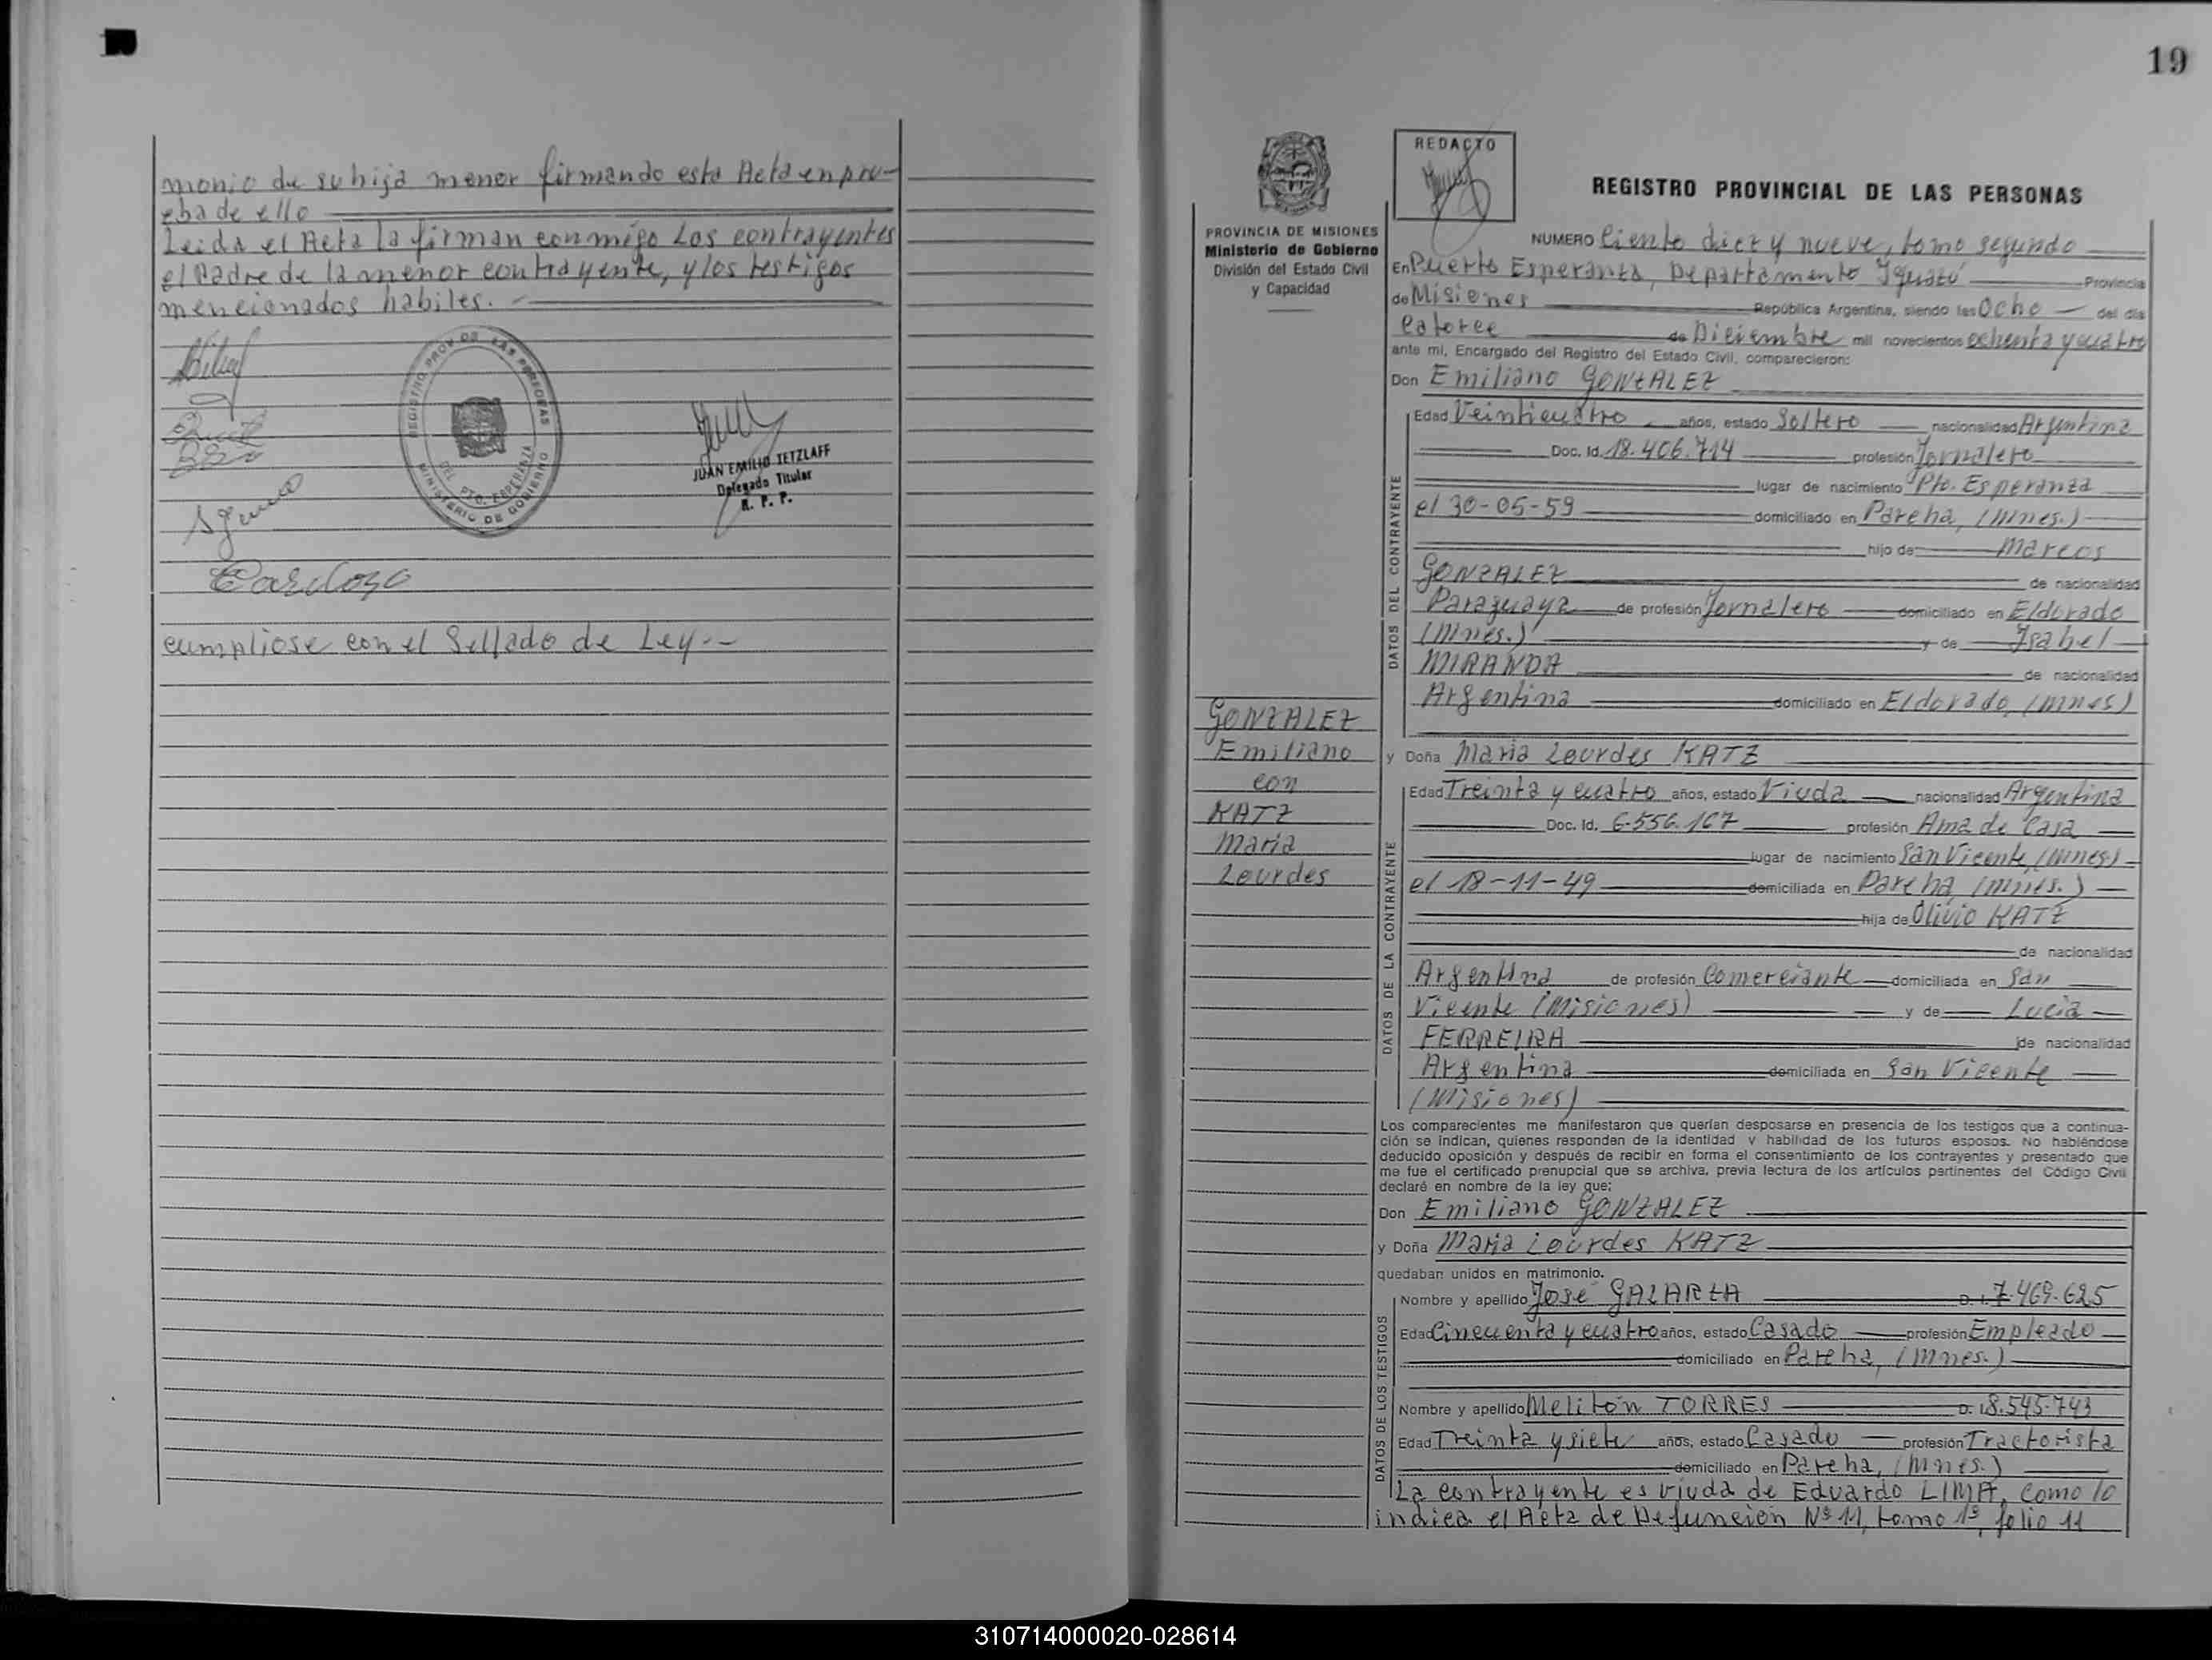 monio de su hija menor firmando esta Acta en pru-
eba de ello
Leida el Acta la firman conmigo Los contrayentes
el Padre de la menor contrayente, y los testigos
mencionados habiles. -
REGISTRO PROV. DE LAS PERSONAS
DEL. PTO. ESPERANZA
MINISTERIO DE GOBIERNO
JUAN EMILIO TETZLAFF
Delegado Titular
R. P. P.
Cardozo
cumpliose con el Sellado de Ley.--
19
PROVINCIA DE MISIONES
Ministerio de Gobierno
División del Estado Civil
y Capacidad
GONZALEZ
Emiliano
con
KATZ
Maria
Lourdes
REDACTO
REGISTRO PROVINCIAL DE LAS PERSONAS
NUMERO Ciento diez y nueve, tomo segundo
En Puerto Esperanza, Departamento Iguazú Provincia
de Misiones República Argentina, siendo las Ocho del día
Catorce de Diciembre mil novecientos ochenta y cuatro
ante mi, Encargado del Registro del Estado Civil, comparecieron:
Don Emiliano GONZALEZ
DATOS DEL CONTRAYENTE
Edad Veinticuatro años, estado Soltero nacionalidad Argentina
Doc. Id. 18.406.714 profesión Jornalero
lugar de nacimiento Pto. Esperanza
el 30-05-59 domiciliado en Pareha, (Mnes.)
hijo de Marcos
GONZALEZ de nacionalidad
Paraguaya de profesión Jornalero domiciliado en Eldorado
(Mnes.) y de Isabel
MIRANDA de nacionalidad
Argentina domiciliado en Eldorado, (Mnes)
y Doña Maria Lourdes KATZ
DATOS DE LA CONTRAYENTE
Edad Treinta y cuatro años, estado Viuda nacionalidad Argentina
Doc. Id. 6.556.167 profesión Ama de Casa
lugar de nacimiento San Vicente, (Mnes.)
el 18-11-49 domiciliada en Pareha, (Mnes.)
hija de Olivio KATZ
de nacionalidad
Argentina de profesión Comerciante domiciliada en San
Vicente (Misiones) y de Lucia
FERREIRA de nacionalidad
Argentina domiciliada en San Vicente
(Misiones)
Los comparecientes me manifestaron que querían desposarse en presencia de los testigos que a continua-
ción se indican, quienes responden de la identidad y habilidad de los futuros esposos. No habiéndose
deducido oposición y después de recibir en forma el consentimiento de los contrayentes y presentado que
me fue el certificado prenupcial que se archiva, previa lectura de los artículos pertinentes del Código Civil
declaré en nombre de la ley que:
Don Emiliano GONZALEZ
y Doña Maria Lourdes KATZ
quedaban unidos en matrimonio.
DATOS DE LOS TESTIGOS
Nombre y apellido José GALARZA D. I. 7.469.625
Edad Cincuenta y cuatro años, estado Casado profesión Empleado
domiciliado en Pareha, (Mnes.)
Nombre y apellido Melitón TORRES D. I 8.545.743
Edad Treinta y siete años, estado Casado profesión Tractorista
domiciliado en Pareha, (Mnes.)
La contrayente es viuda de Eduardo LIMA, como lo
indica el Acta de Defunción Nº 11, tomo 1º, folio 11
310714000020-028614